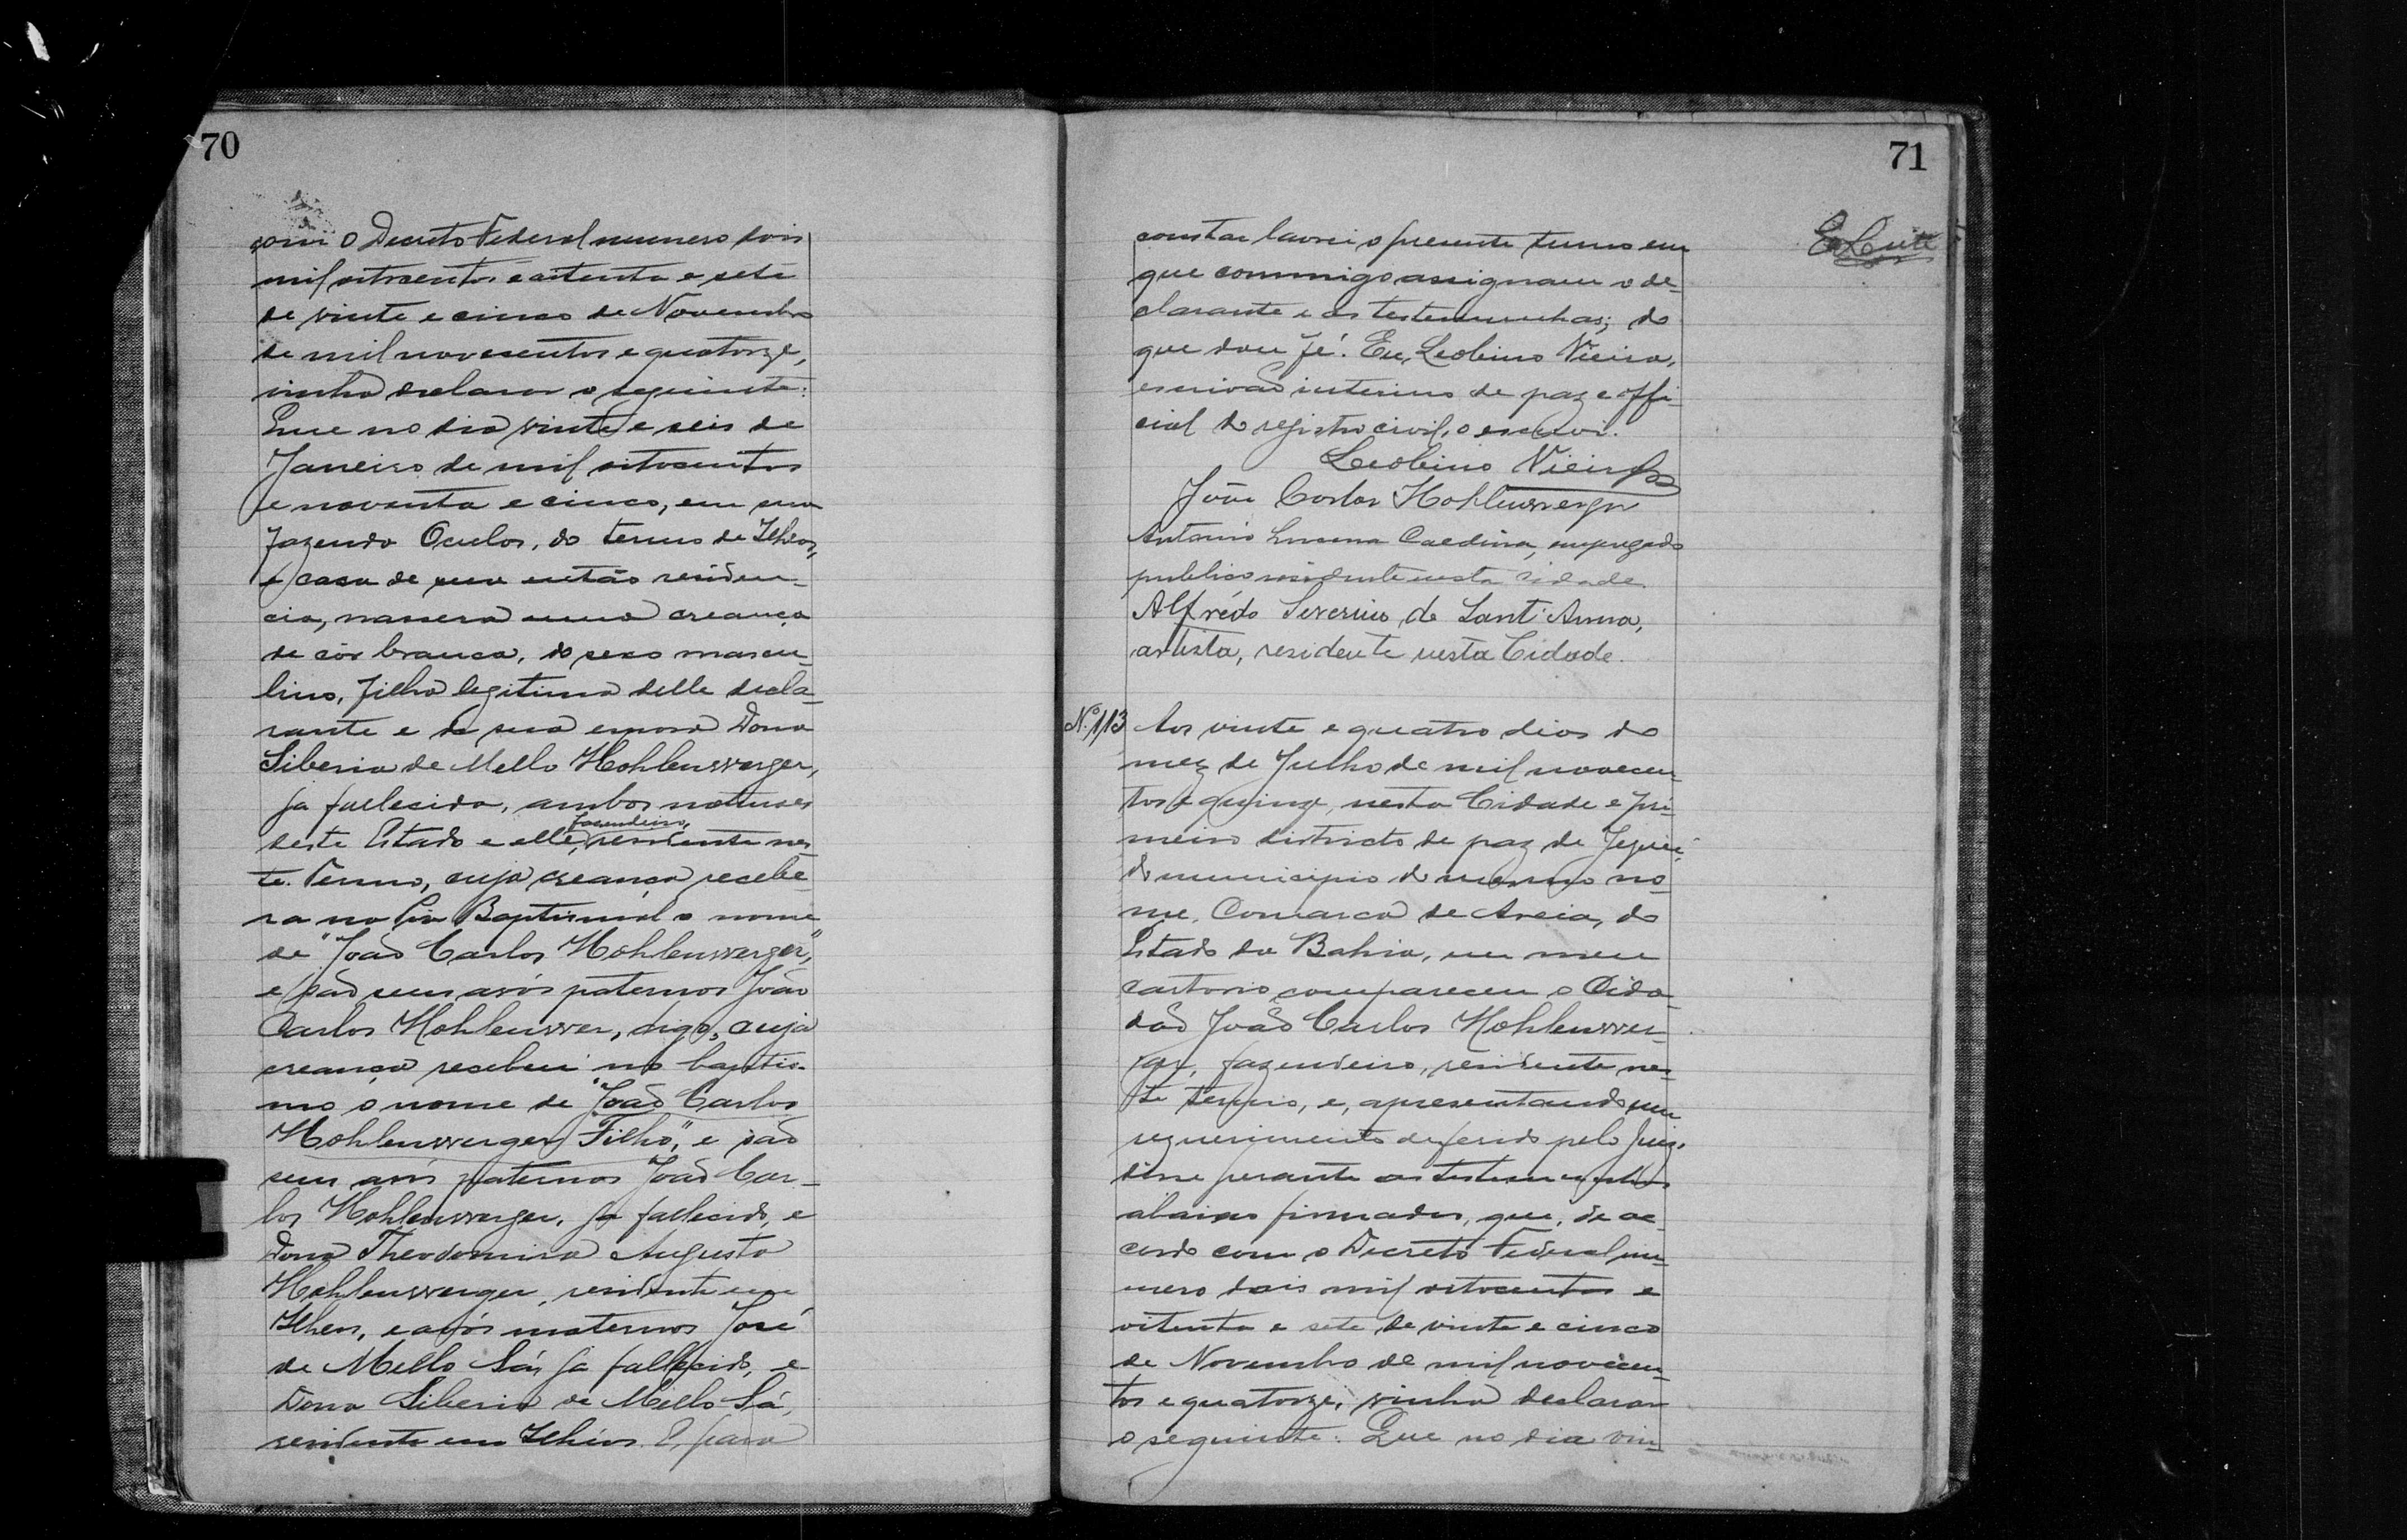 70
com o Decreto Federal numero dois
mil oitocentos e oitenta e sete
de vinte e cinco de Novembro
de mil novecentos e quatorze,
vinha declarar o seguinte:
Que no dia vinte e seis de
Janeiro de mil oitocentos
e noventa e cinco, em sua
fazenda Oculos, do termo de Ilheos,
e casa de sua então residen-
cia, nascera uma creança
de côr branca, do sexo mascu-
lino, filho legitimo delle decla-
rante e de sua esposa Dona
Siberia de Mello Hohlenwerger,
ja fallecida, ambos naturaes
fazendeiro,
deste Estado e elle, residente nes-
te Termo, cuja creança recebe-
ra na Pia Baptismal o nome
de "João Carlos Hohlenwerger,"
e são seus avós paternos João
Carlos Hohlenwer, digo, cuja
creança recebeu no baptis-
mo o nome de "João Carlos
Hohlenwerger Filho," e são
seus avós paternos João Car-
los Hohlenwerger, ja fallecido, e
Dona Theodomira Augusta
Hohlenwerger, residente em
Ilheos, e avós maternos José
de Mello Sá, ja fallecido, e
Dona Siberia de Mello Sá,
residente em Ilhéos. E, para
71
constar lavrei o presente termo em
que commigo assignam o de-
clarante e as testemunhas; do
que dou fé. Eu, Leolino Vieira,
escrivão interino de paz e offi-
cial do registro civil, o escrevi.
Leolino Vieira
João Carlos Hohlenwerger
Antonio Lucena Caldeira, empregado
publico residente nesta cidade.
Alfrédo Severino de Sant'Anna,
artista, residente nesta Cidade.
Nº. 113 Aos vinte e quatro dias do
mez de Julho de mil novecen-
tos e quinze, nesta Cidade e pri-
meiro districto de paz de Jequié,
do municipio do mesmo no-
me, Comarca de Areia, do
Estado da Bahia, em meu
cartorio compareceu o Cida-
dão João Carlos Hohlenwer-
ger, fazendeiro, residente nes-
te termo, e, apresentando um
requerimento deferido pelo Juiz,
disse perante as testemunhas
abaixo firmadas, que, de ac-
cordo com o Decreto Federal nu-
mero dois mil oitocentos e
oitenta e sete de vinte e cinco
de Novembro de mil novecen-
tos e quatorze, vinha declarar
o seguinte: Que no dia vin-